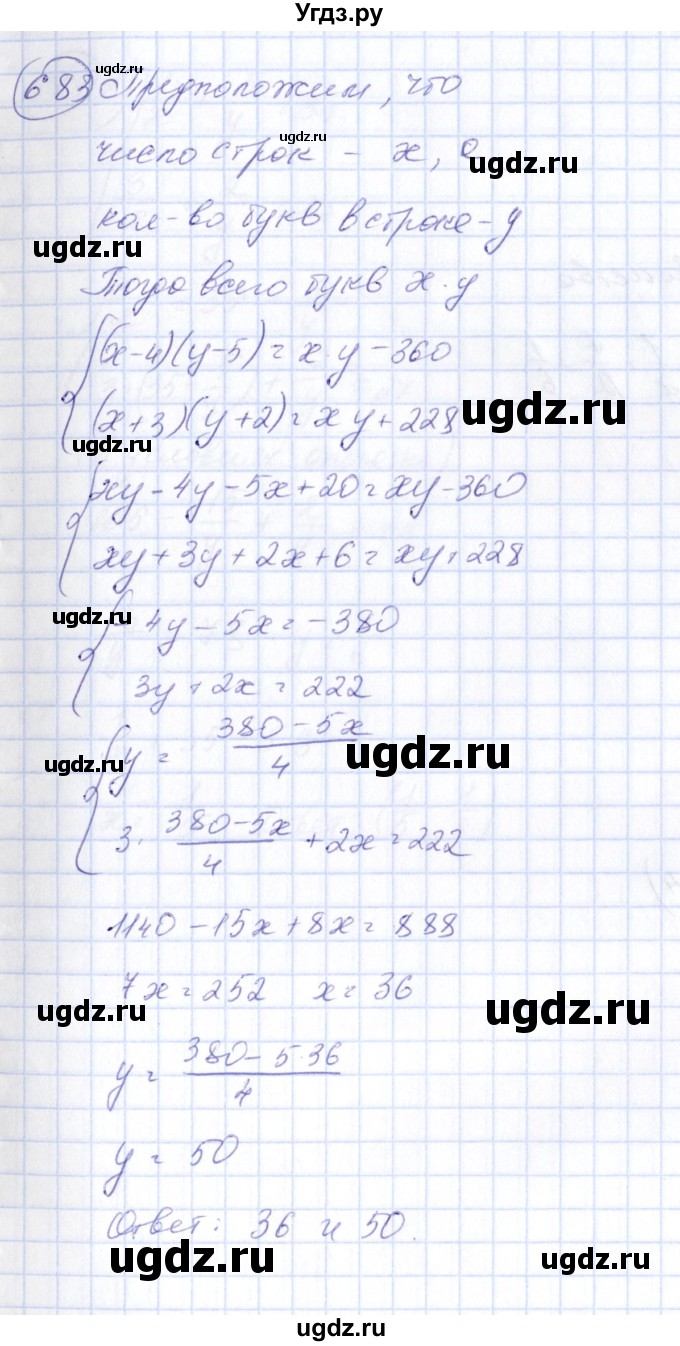 Угдз.ру
683 Предположим, что
ugdz.ru
ugdz.ru
число строк - x, а
ugdz.ru
кол-во букв в строке - y
ugdz.ru
Тогда всего букв x·y
(x-4)(y-5) = x·y - 360
(x+3)(y+2) = xy + 228
ugdz.ru
ugdz.ru
xy - 4y - 5x + 20 = xy - 360
xy + 3y + 2x + 6 = xy + 228
ugdz.ru
-4y - 5x = -380
3y + 2x = 222
y = (380 - 5x)/4
ugdz.ru
ugdz.ru
3· (380 - 5x)/4 + 2x = 222
1140 - 15x + 8x = 888
7x = 252 x = 36
ugdz.ru
ugdz.ru
y = (380 - 5·36)/4
y = 50
Ответ: 36 и 50.
ugdz.ru
ugdz.ru
ugdz.ru